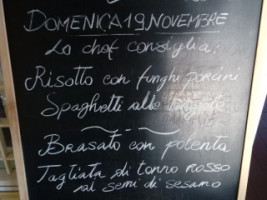 DOMENICA 19 NOVEMBRE
Lo chef consiglia:
Risotto con funghi porcini
Spaghetti alle
Brasato con polenta
Tagliata di tonno ROSSO
ai semi di sesamo